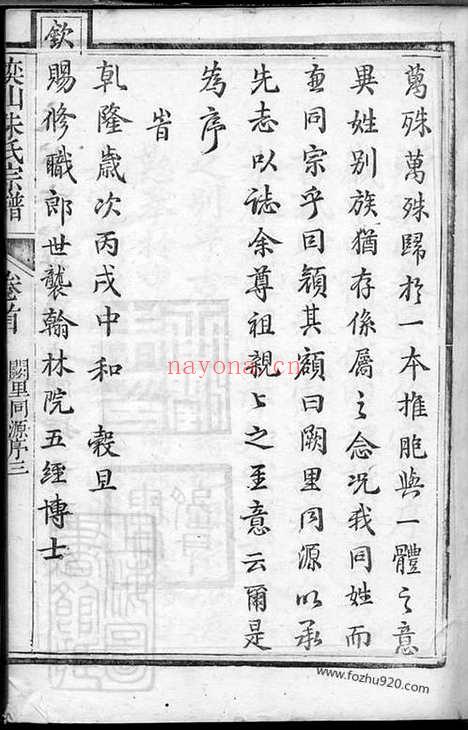 萬殊萬殊歸於一本推胞與一體之意
異姓別族猶存係屬之念况我同姓而
兼同宗乎因額其額曰闕里同源以承
先志以誌余尊祖親親之至意云爾是
為序
旹
乾隆歲次丙戌中和穀旦
欽
賜修職郎世襲翰林院五經博士
奕山朱氏宗譜
卷首
闕里同源序三
nayona.cn
www.fozhu920.com